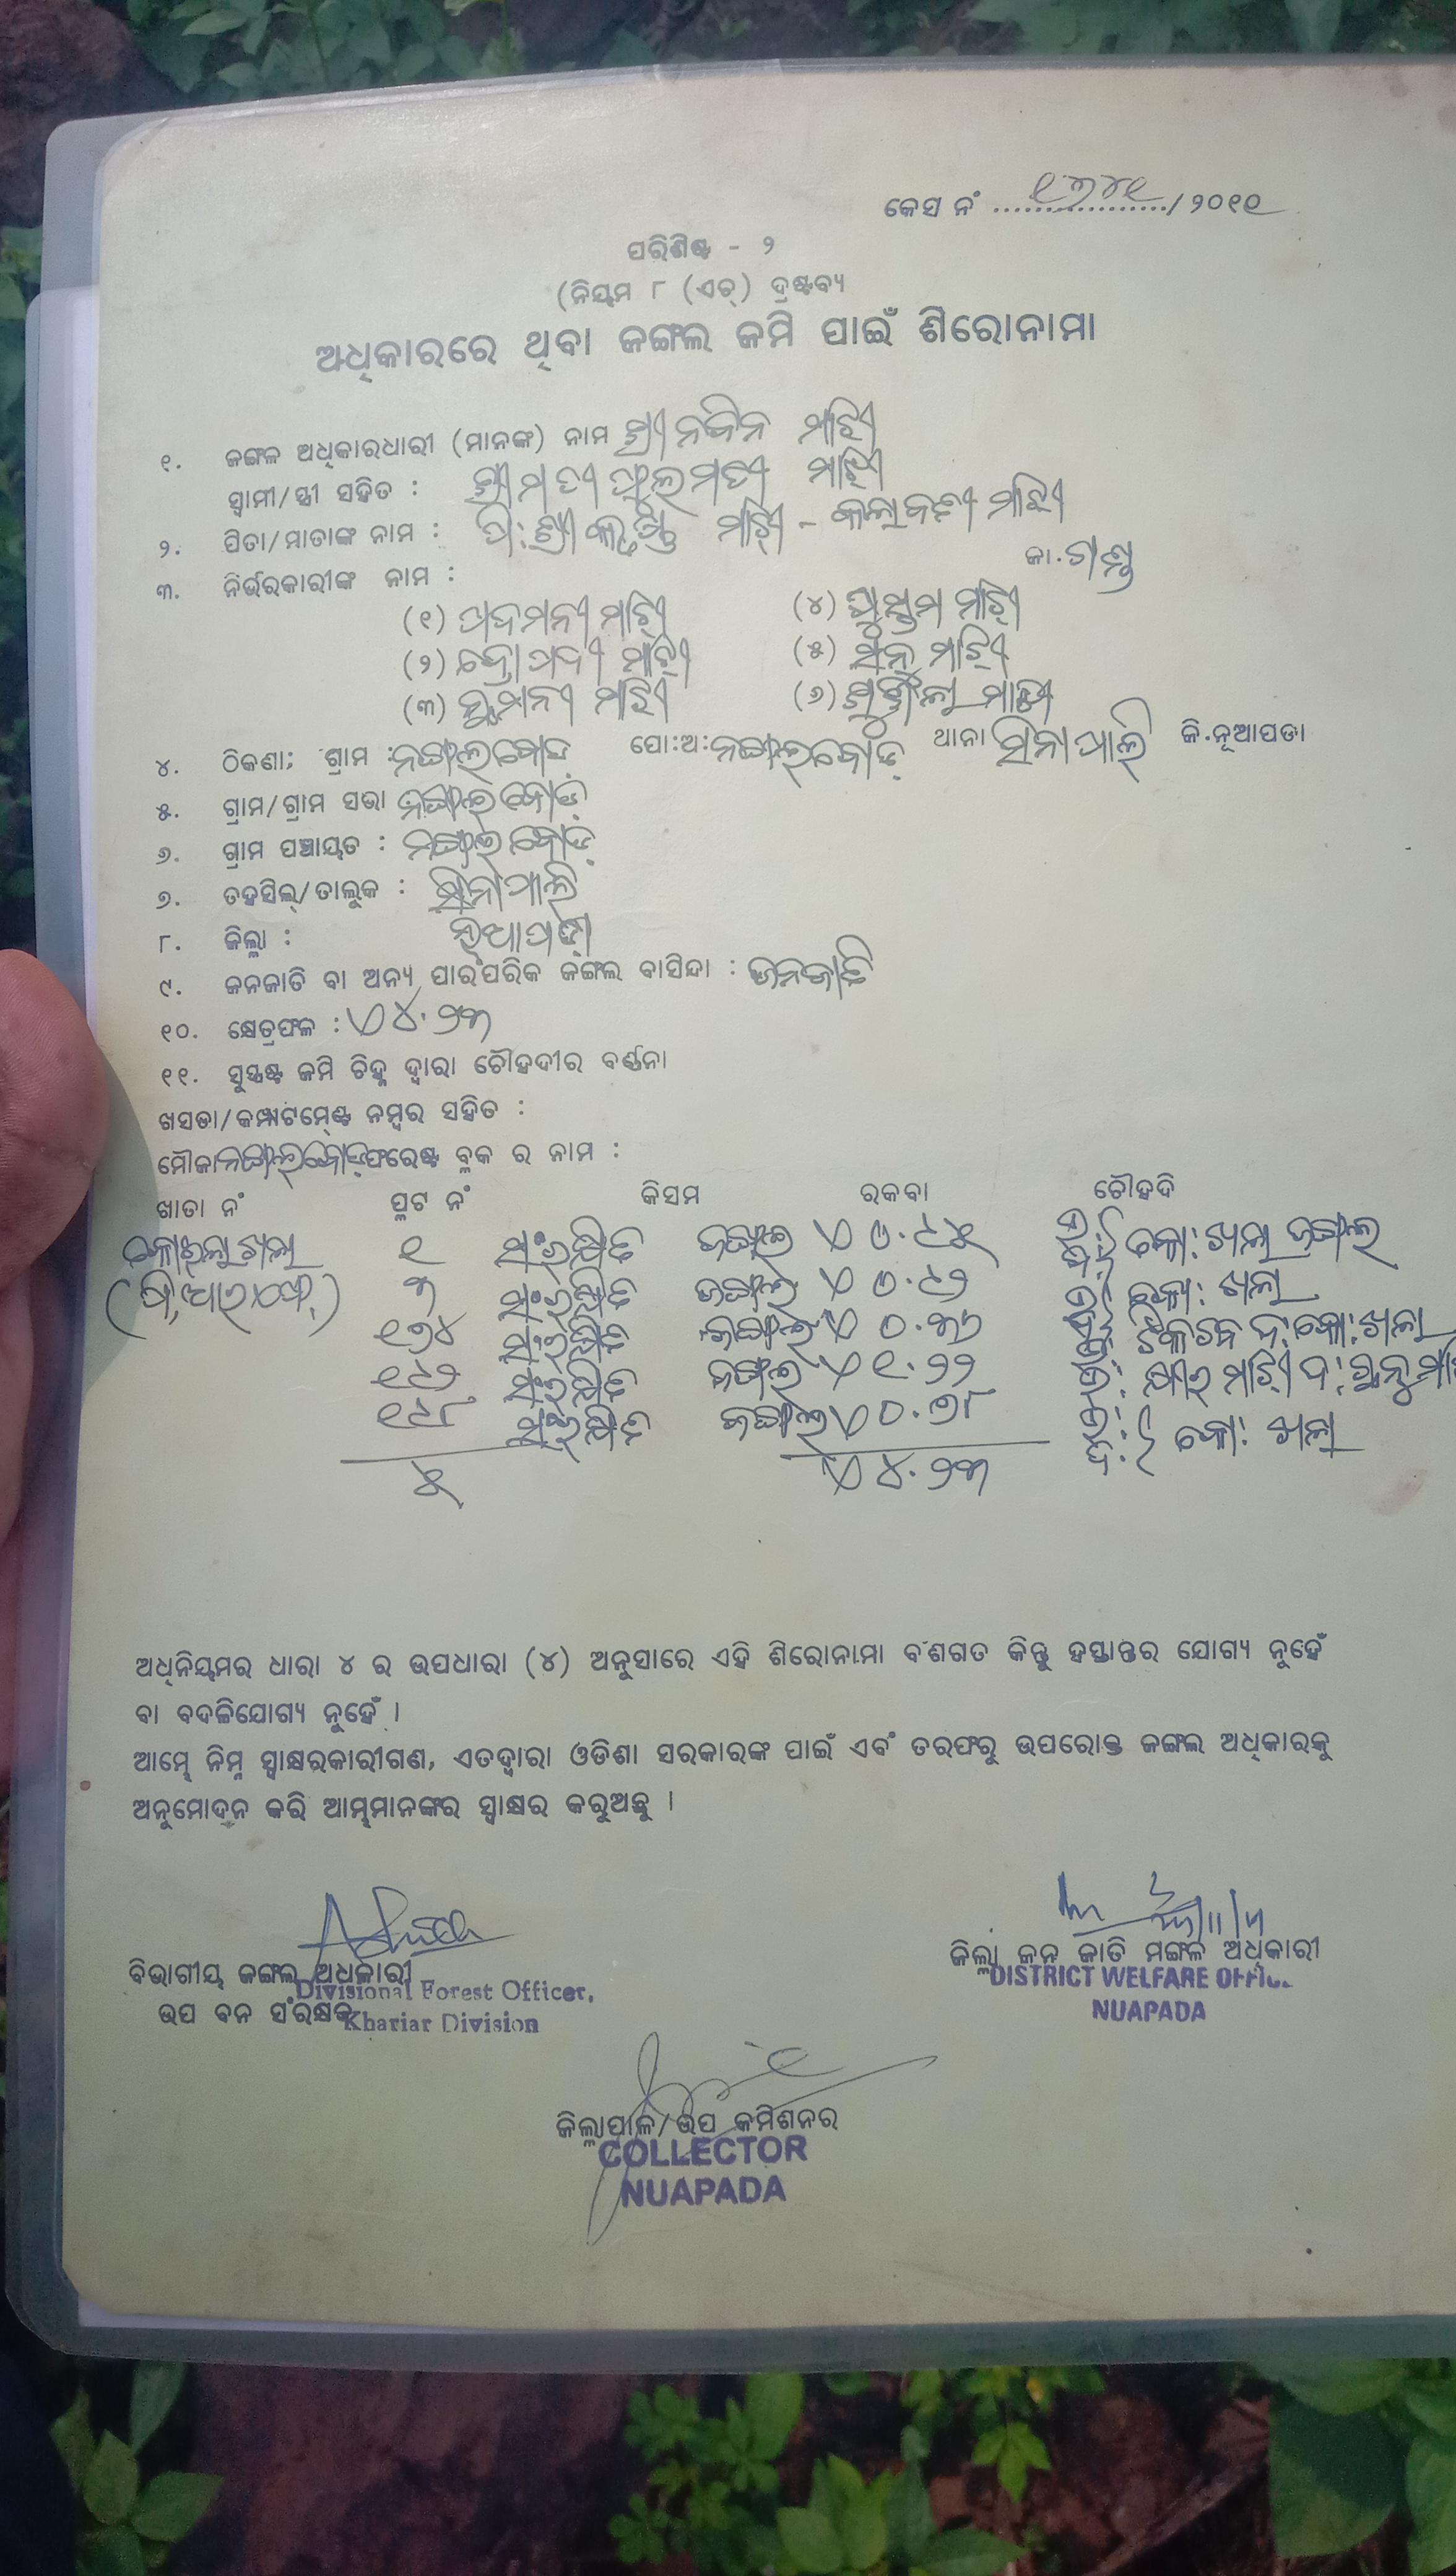 କେସ ନଂ ୧୩୪୧/୨୦୧୧
ପରିଶିଷ୍ଟ - ୨
(ନିୟମ ୮ (ଏଚ୍) ଦ୍ରଷ୍ଟବ୍ୟ
ଅଧିକାରରେ ଥିବା ଜଙ୍ଗଲ ଜମି ପାଇଁ ଶିରୋନାମା
୧. ଜଙ୍ଗଳ ଅଧିକାରଧାରୀ (ମାନଙ୍କ) ନାମ ଶ୍ରୀ ନବିନ ମାଝି
ସ୍ୱାମୀ/ସ୍ତ୍ରୀ ସହିତ : ଶ୍ରୀମତୀ ଫୁଲମତୀ ମାଝି
୨. ପିତା/ମାତାଙ୍କ ନାମ : ପି: ଶ୍ରୀ ମାଝି - କଳାବତୀ ମାଝି
୩. ନିର୍ଭରକାରୀଙ୍କ ନାମ : ଜା. ଗଣ୍ଡ
(୧) ପଦମନୀ ମାଝି (୪) ମାଝି
(୨) ମାଝି (୫) ମାଝି
(୩) ମାଝି (୬) ମାଝୀ
୪. ଠିକଣା; ଗ୍ରାମ : ନଙ୍ଗଲବୋଡ଼ ପୋ:ଅ: ନଙ୍ଗଲବୋଡ଼ ଥାନା ସିନାପାଲି ଜି.ନୂଆପଡା
୫. ଗ୍ରାମ/ଗ୍ରାମ ସଭା ନଙ୍ଗଲବୋଡ଼
୬. ଗ୍ରାମ ପଞ୍ଚାୟତ : ନଙ୍ଗଲବୋଡ଼
୭. ତହସିଲ୍/ତାଲୁକ : ସିନାପାଲି
୮. ଜିଲ୍ଲା : ନୂଆପଡ଼ା
୯. ଜନଜାତି ବା ଅନ୍ୟ ପାରଂପରିକ ଜଙ୍ଗଲ ବାସିନ୍ଦା : ଜନଜାତି
୧୦. କ୍ଷେତ୍ରଫଳ : ଏ ୪.୨୩
୧୧. ସୁସ୍ପଷ୍ଟ ଜମି ଚିହ୍ନ ଦ୍ୱାରା ଚୌହଦୀର ବର୍ଣ୍ଣନା
ଖସଡା/କମ୍ପାଟମେଣ୍ଟ ନମ୍ବର ସହିତ :
ମୌଜା ନଙ୍ଗଲବୋଡ଼ ଫରେଷ୍ଟ ବ୍ଳକ ର ନାମ :
ଖାତା ନଂ ପ୍ଲଟ ନଂ କିସମ ରକବା ଚୌହଦି
୧ ସଂରକ୍ଷିତ ଜଙ୍ଗଲ ଏ ୦.୯୫ ଉ: ଦ: କୋ: ଖଲା ଜଙ୍ଗଲ
(ପି,ଆର,ଏଫ୍) ୩ ସଂରକ୍ଷିତ ଜଙ୍ଗଲ ଏ ୦.୯୨ କୋ: ଖଲା
୧୭୪ ସଂରକ୍ଷିତ ଜଙ୍ଗଲ ଏ ୦.୩୬ ଦ: କୋ: ଖଲା
୧୯୨ ସଂରକ୍ଷିତ ଜଙ୍ଗଲ ଏ ୧.୨୨ ଉ: ମାଝି ଦ:
୧୯୮ ସଂରକ୍ଷିତ ଜଙ୍ଗଲ ଏ ୦.୭୮ ଉ: ଦ: କୋ: ଖଲା
୫ ଏ ୪.୨୩
ଅଧିନିୟମର ଧାରା ୪ ର ଉପଧାରା (୪) ଅନୁସାରେ ଏହି ଶିରୋନାମା ବଂଶଗତ କିନ୍ତୁ ହସ୍ତାନ୍ତର ଯୋଗ୍ୟ ନୁହେଁ
ବା ବଦଳିଯୋଗ୍ୟ ନୁହେଁ ।
ଆମ୍ଭେ ନିମ୍ନ ସ୍ୱାକ୍ଷରକାରୀଗଣ, ଏତଦ୍ୱାରା ଓଡିଶା ସରକାରଙ୍କ ପାଇଁ ଏବଂ ତରଫରୁ ଉପରୋକ୍ତ ଜଙ୍ଗଲ ଅଧିକାରକୁ
ଅନୁମୋଦନ କରି ଆମ୍ଭମାନଙ୍କର ସ୍ୱାକ୍ଷର କରୁଅଛୁ ।
ବିଭାଗୀୟ ଜଙ୍ଗଲ ଅଧିକାରୀ
Divisional Forest Officer,
ଉପ ବନ ସଂରକ୍ଷକ
Khariar Division
ଜିଲ୍ଲା ଜନ ଜାତି ମଙ୍ଗଳ ଅଧିକାରୀ
DISTRICT WELFARE OFFICE
NUAPADA
ଜିଲ୍ଲାପାଳ/ଉପ କମିଶନର
COLLECTOR
NUAPADA